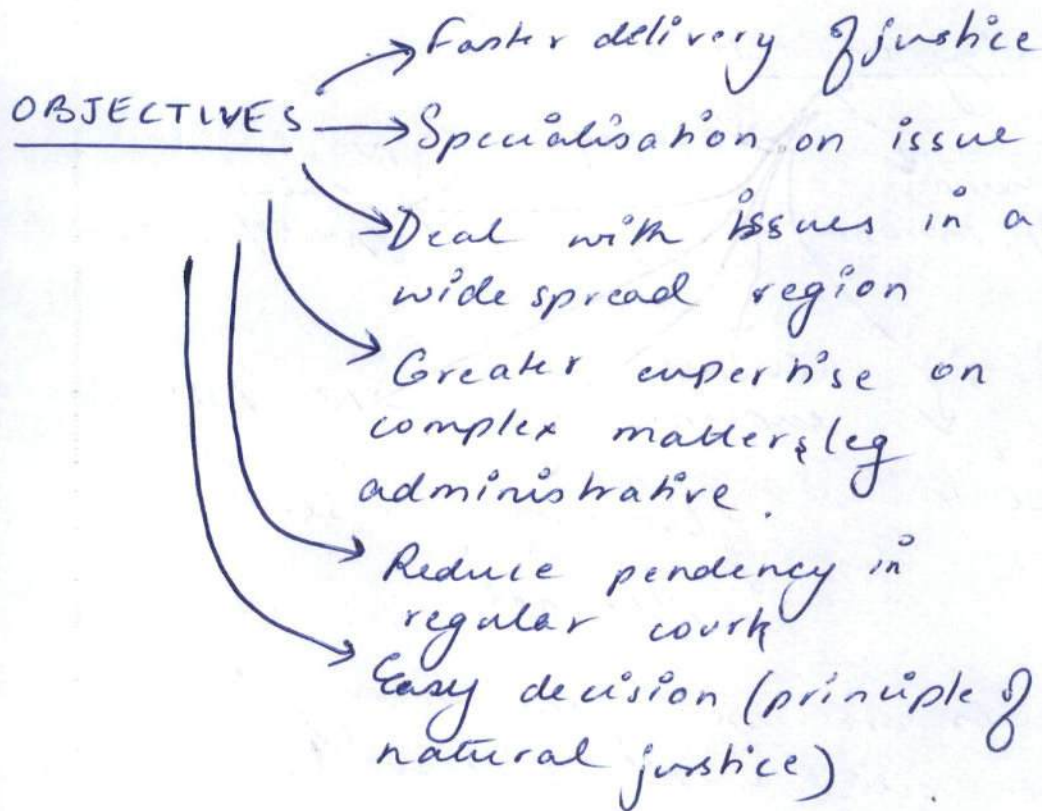 Faster delivery of justice
OBJECTIVES
Specialisation on issue
Deal with issues in a
wide spread region
Greater expertise on
complex matters eg
administrative.
Reduce pendency in
regular courts
Easy decision (principle of
natural justice)